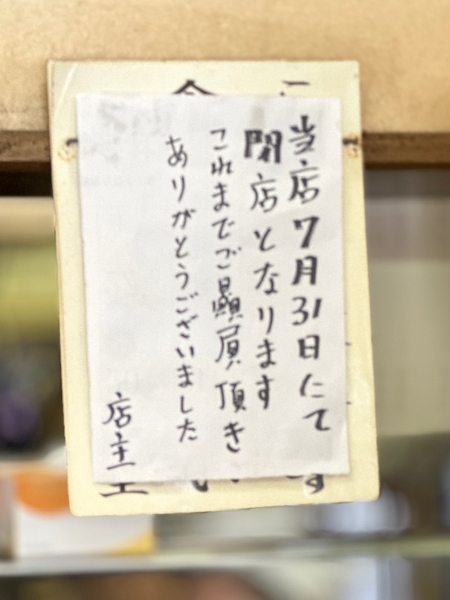 当店7月31日にて
閉店となります
これまでご顕屓頂き
ありがとうございました
店主